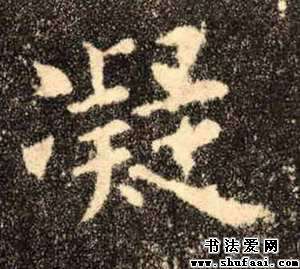 凝
书法爱网
www.shufaai.com